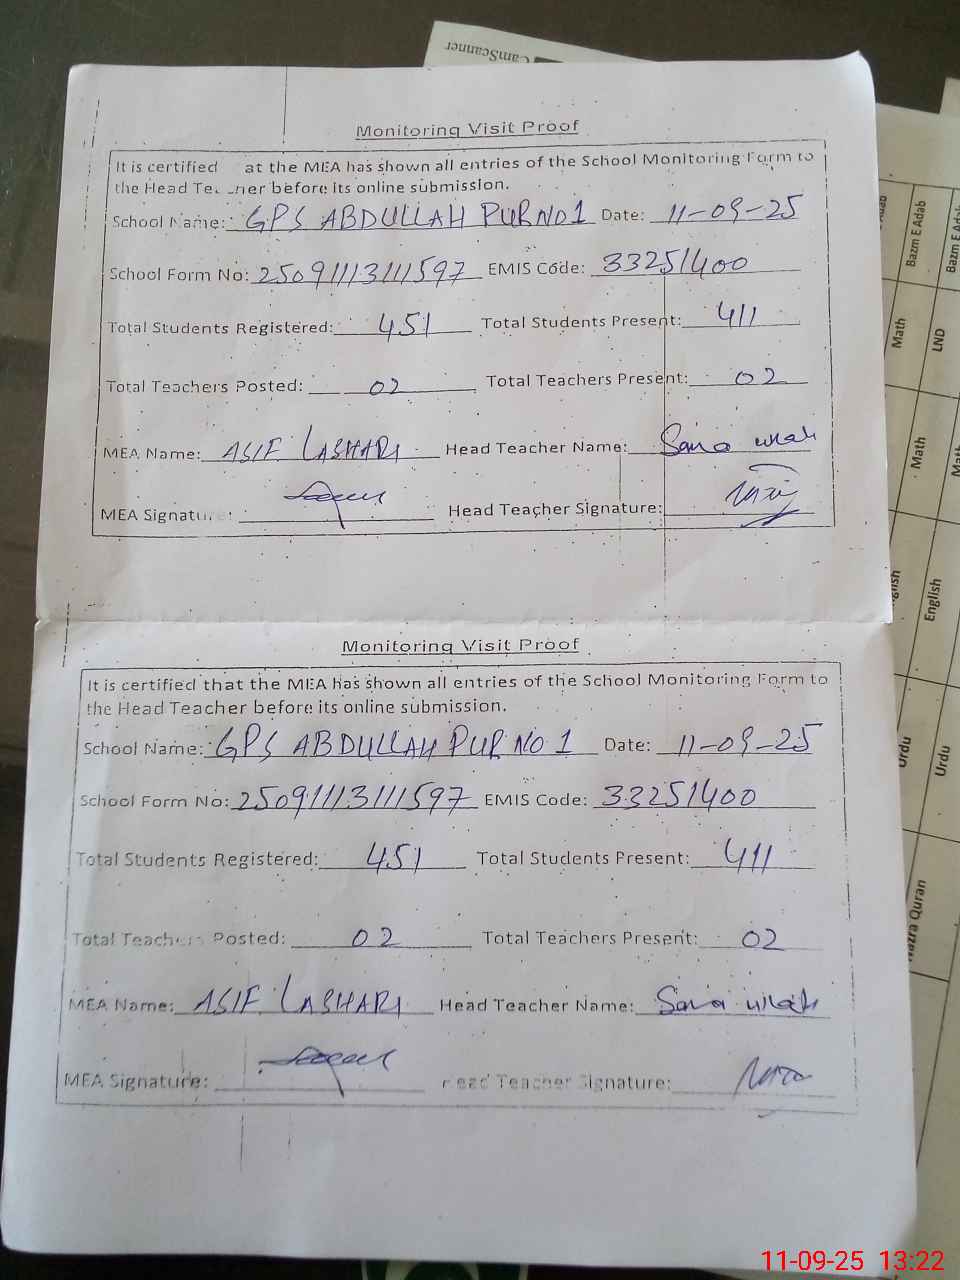 CamScanner
Monitoring Visit Proof
It is certified at the MEA has shown all entries of the School Monitoring Form to
the Head Teacher before its online submission.
School Name: GPS ABDULLAH PUR NO 1 Date: 11-09-25
School Form No: 25091113111597 EMIS Code: 33251400
Total Students Registered: 451 Total Students Present: 411
Total Teachers Posted: 02 Total Teachers Present: 02
MEA Name: ASIF LASHARI Head Teacher Name: Sana
MEA Signature: Head Teacher Signature:
Monitoring Visit Proof
It is certified that the MEA has shown all entries of the School Monitoring Form to
the Head Teacher before its online submission.
School Name: GPS ABDULLAH PUR NO 1 Date: 11-09-25
School Form No: 25091113111597 EMIS Code: 33251400
Total Students Registered: 451 Total Students Present: 411
Total Teachers Posted: 02 Total Teachers Present: 02
MEA Name: ASIF LASHARI Head Teacher Name: Sana
MEA Signature: Head Teacher Signature:
Bazm E Adab
Bazm E Adab
Math
LND
Math
Math
English
Urdu
Urdu
Nazra Quran
11-09-25 13:22